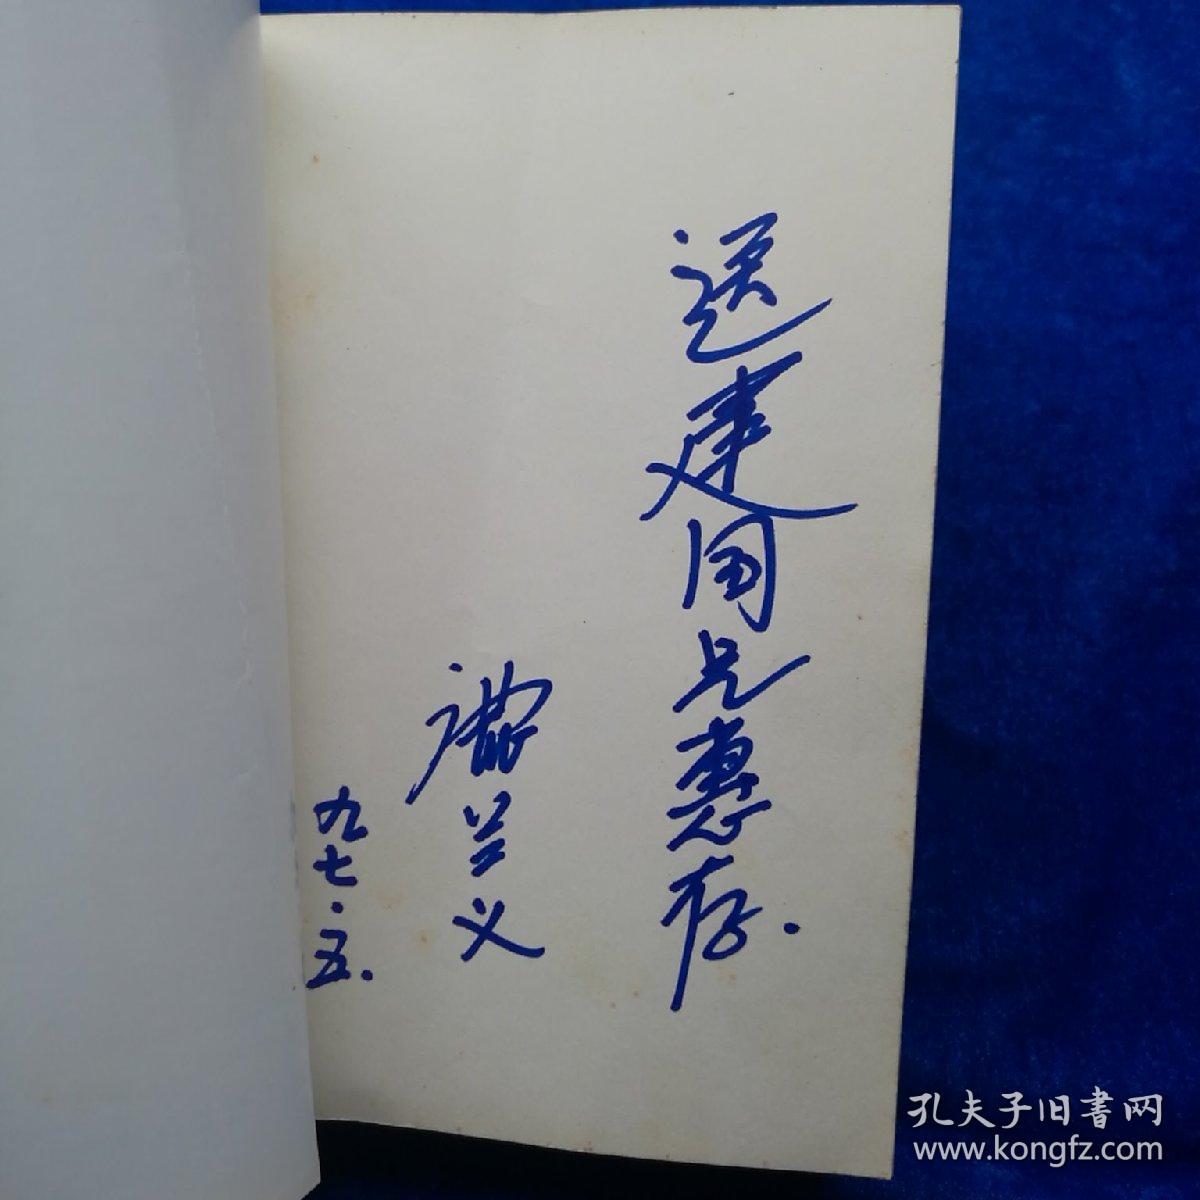 送建国兄惠存.
谭兰义
九七·五.
孔夫子旧書网
www.kongfz.com